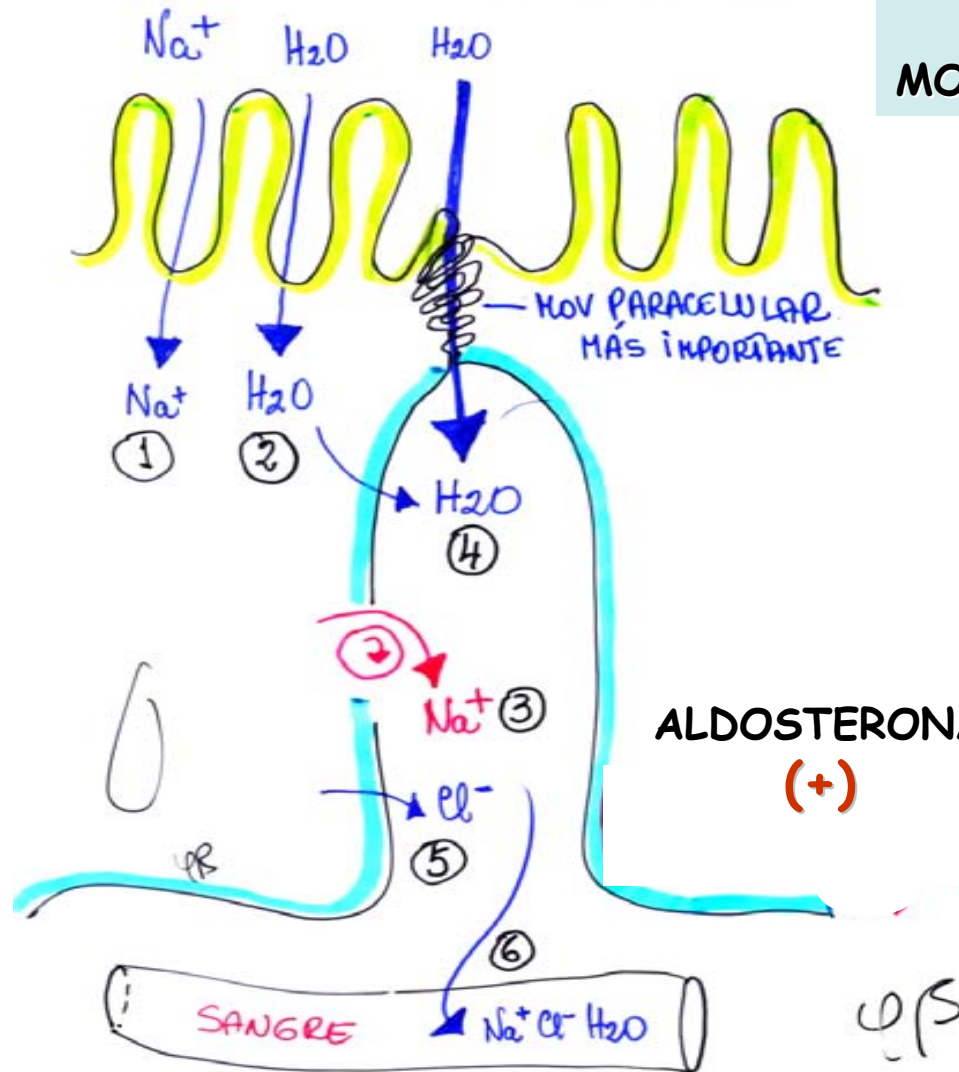 Na+ H2O H2O
MO
MOV PARACELULAR
MÁS IMPORTANTE
Na+ H2O
1 2
H2O
4
Na+ 3
ALDOSTERONA
(+)
Cl-
5
6
SANGRE Na+ Cl- H2O